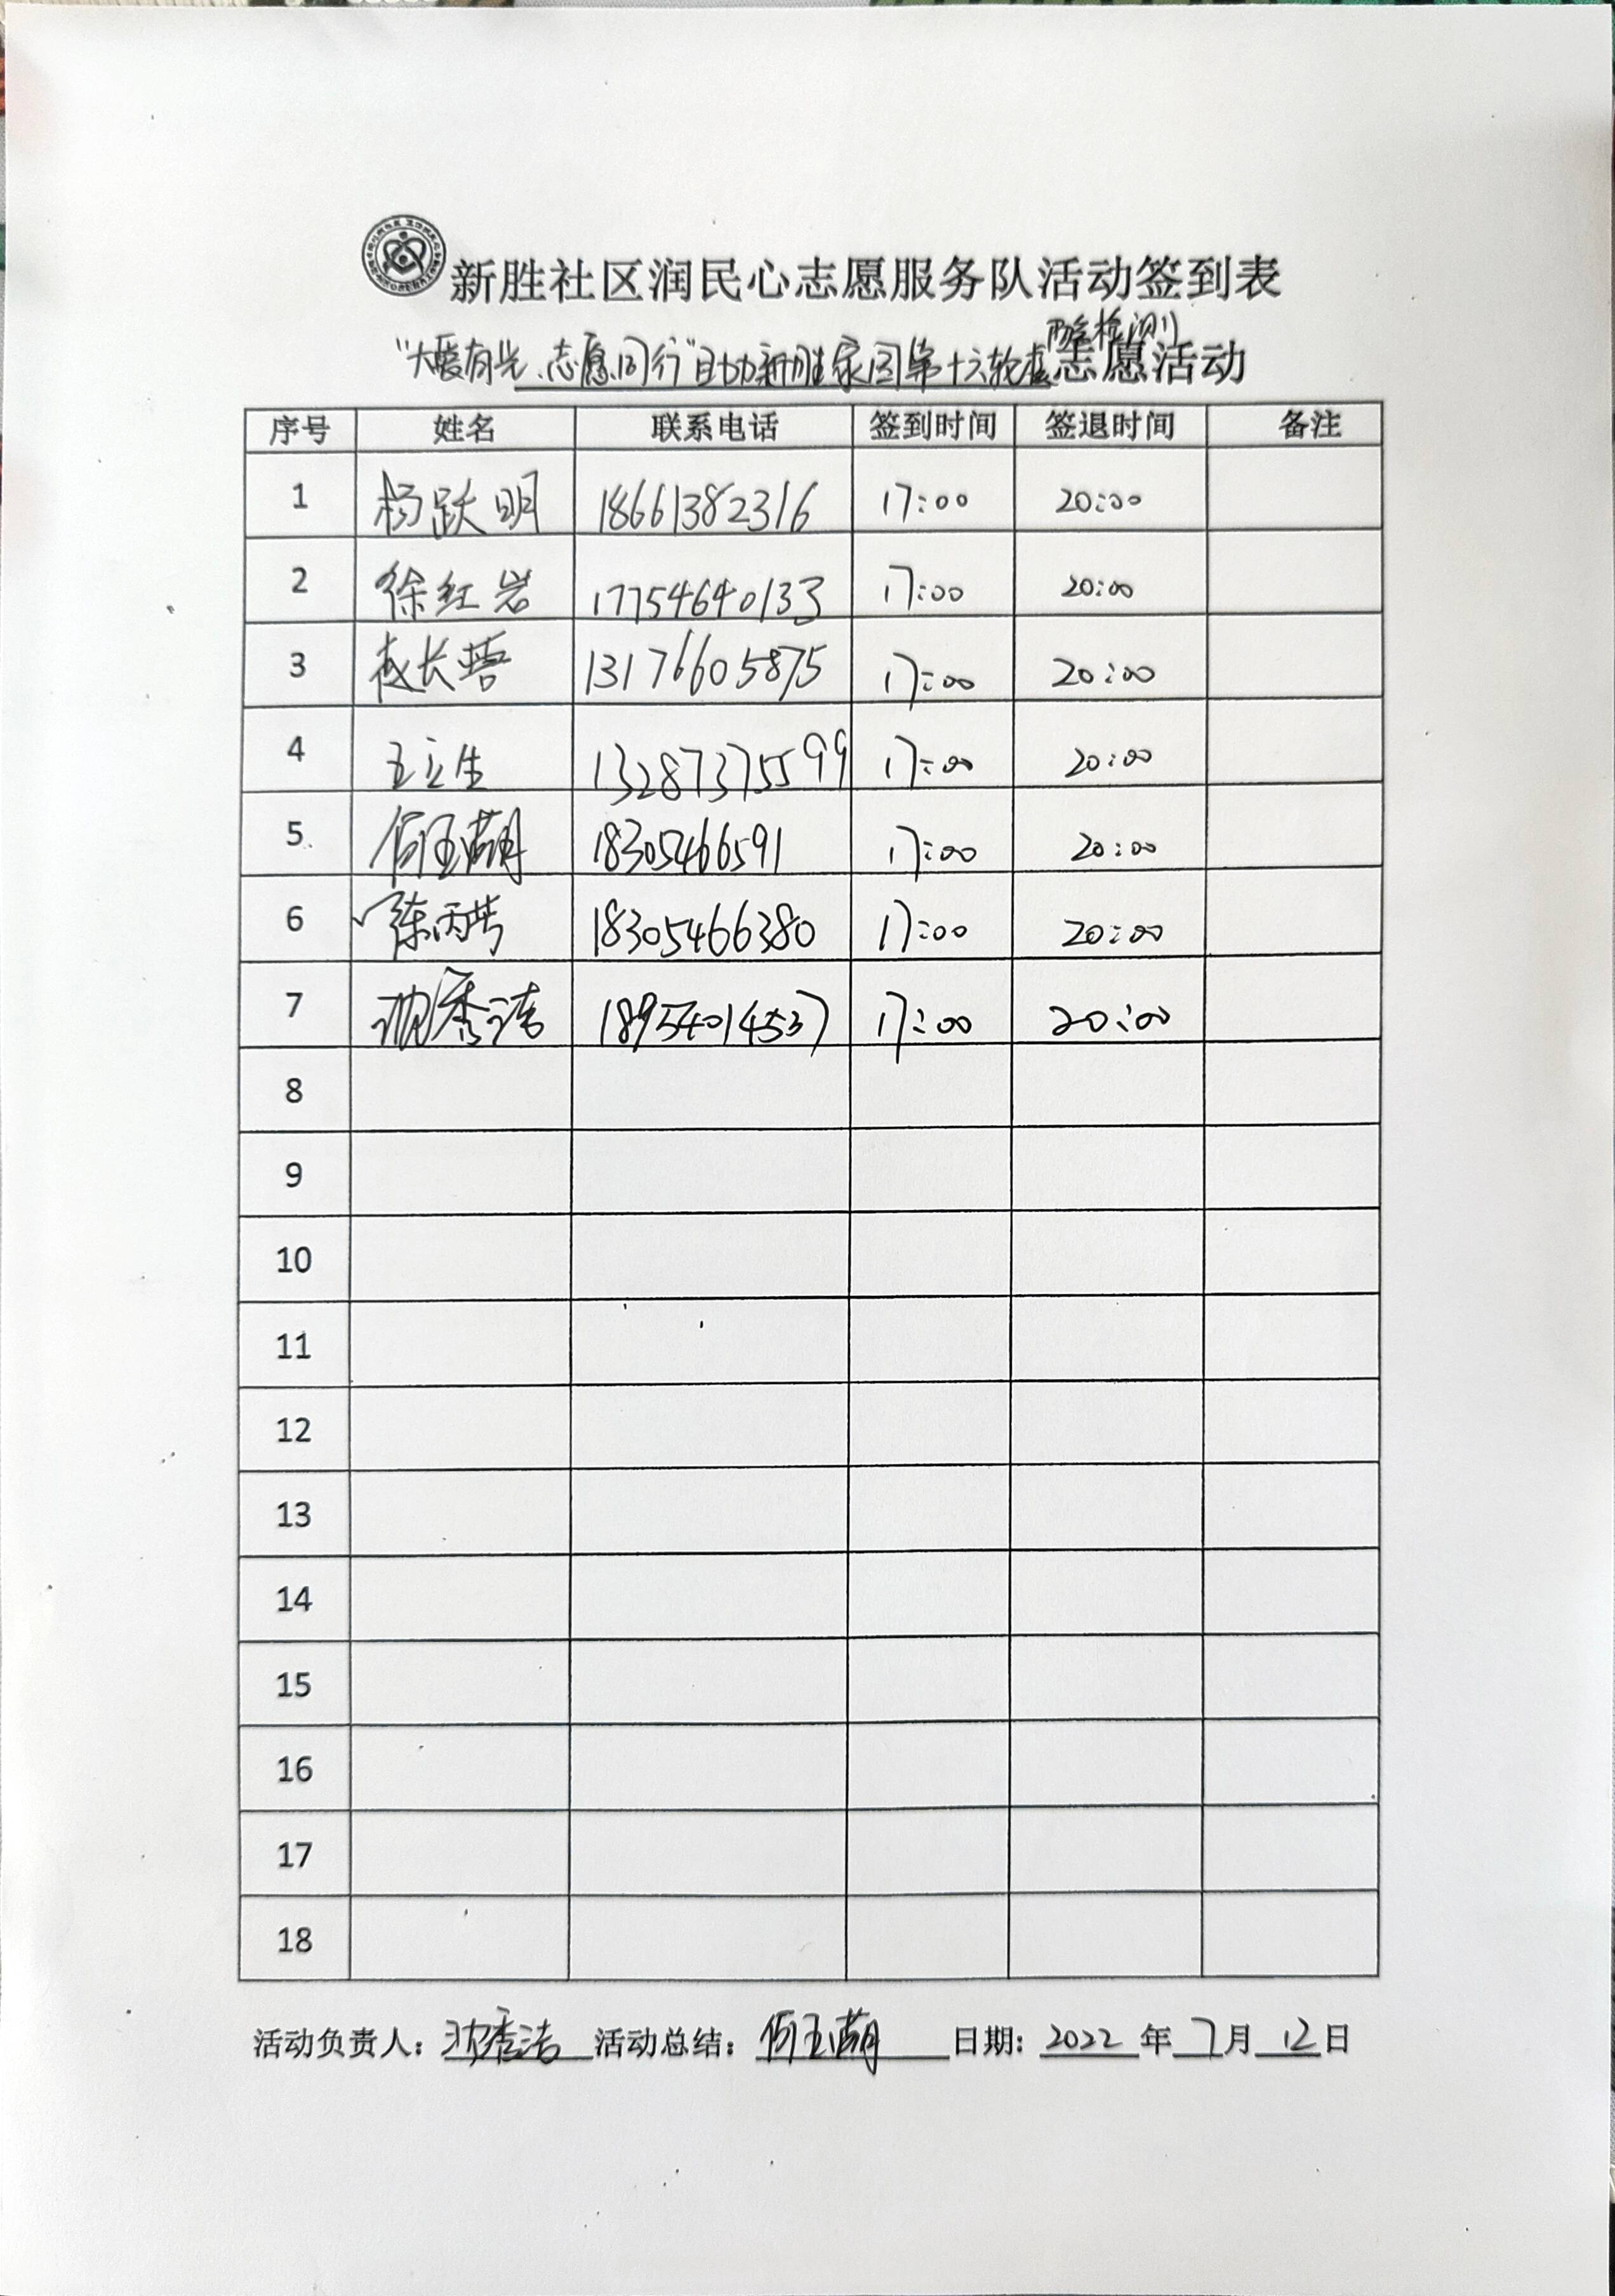 新胜社区润民心志愿服务队活动签到表
"大爱有光、志愿同行"助力新胜家园第十六轮核酸检测志愿活动
序号 姓名 联系电话 签到时间 签退时间 备注
1 杨跃明 18661382316 17:00 20:00
2 徐红岩 17754640133 17:00 20:00
3 长 13176605875 17:00 20:00
4 王立生 13287375599 17:00 20:00
5 何玉萌 18305466591 17:00 20:00
6 陈丙 18305466380 17:00 20:00
7 沈秀洁 18954014537 17:00 20:00
8
9
10
11
12
13
14
15
16
17
18
活动负责人: 沈秀洁 活动总结: 何玉萌 日期: 2022 年 7 月 12 日